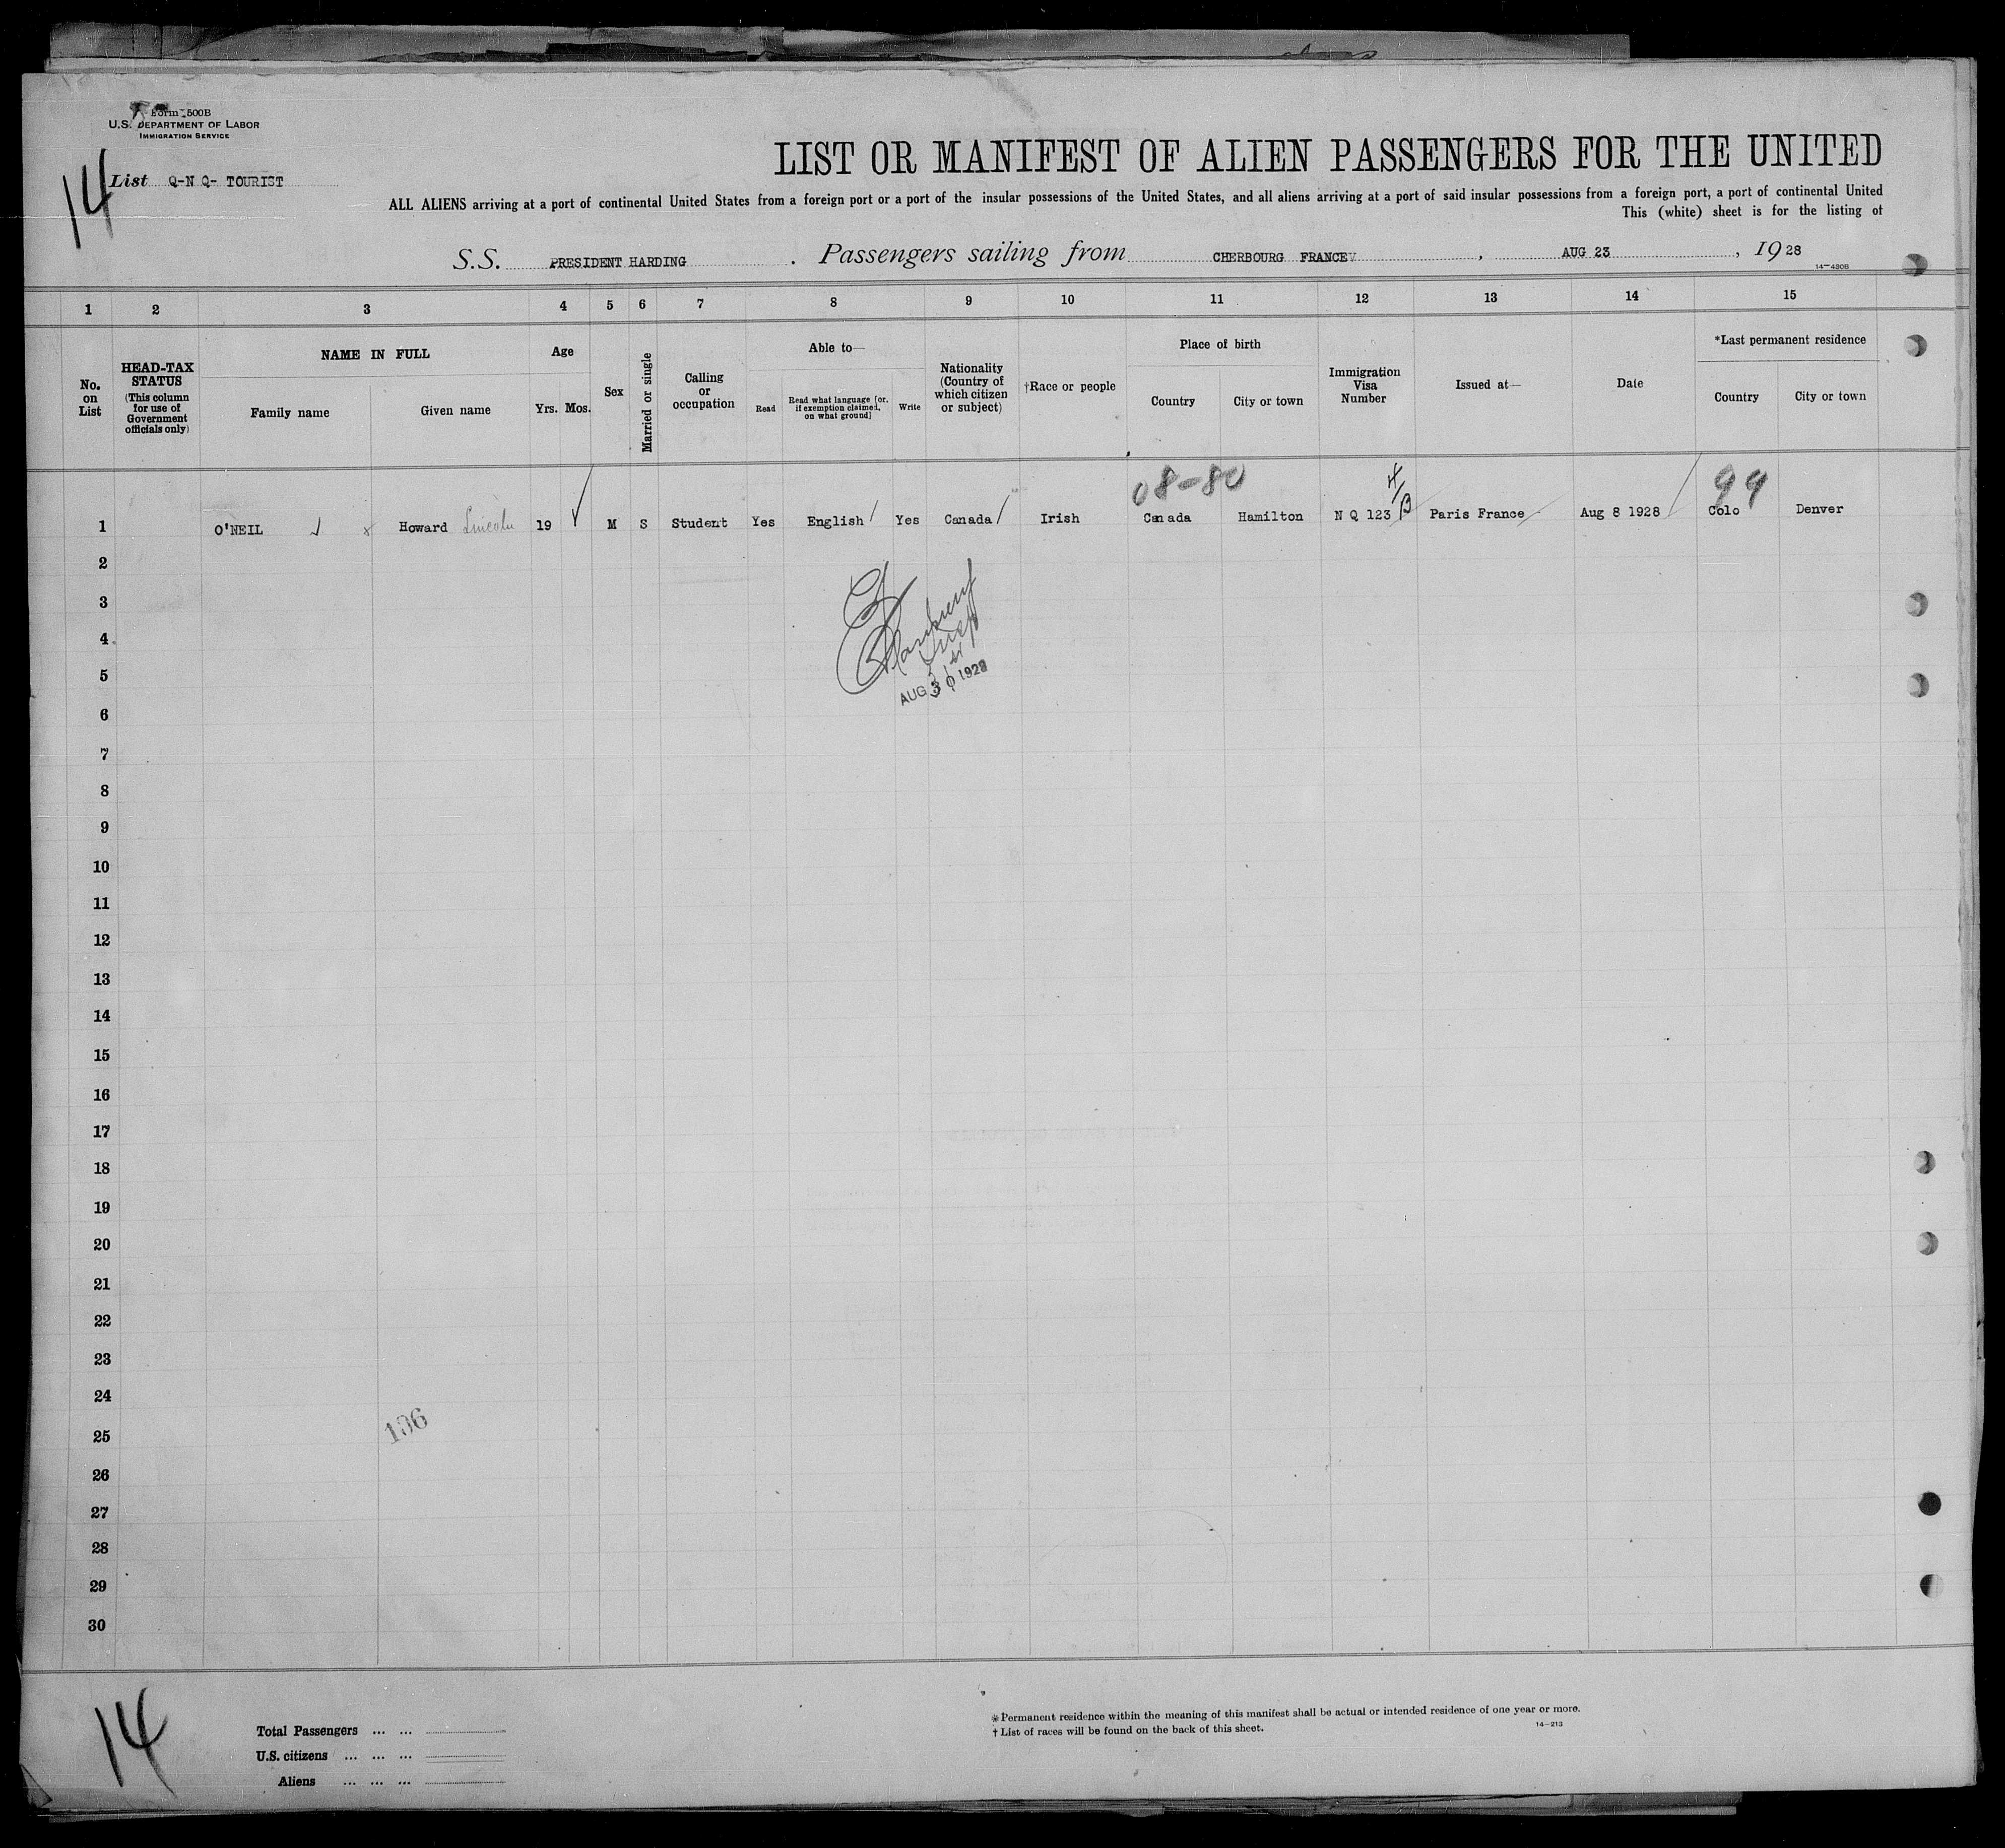 Form 500B
U.S. DEPARTMENT OF LABOR
IMMIGRATION SERVICE
14
List Q-N Q- TOURIST
LIST OR MANIFEST OF ALIEN PASSENGERS FOR THE UNITED
ALL ALIENS arriving at a port of continental United States from a foreign port or a port of the insular possessions of the United States, and all aliens arriving at a port of said insular possessions from a foreign port, a port of continental United
This (white) sheet is for the listing of
S.S. PRESIDENT HARDING . Passengers sailing from CHERBOURG FRANCE , AUG 23 , 1928
14-430B
1 2 3 4 5 6 7 8 9 10 11 12 13 14 15
No. on List
HEAD-TAX STATUS (This column for use of Government officials only)
NAME IN FULL
Family name
Given name
Age
Yrs. Mos.
Sex
Married or single
Calling or occupation
Able to—
Read
Read what language [or, if exemption claimed, on what ground]
Write
Nationality (Country of which citizen or subject)
†Race or people
Place of birth
Country
City or town
Immigration Visa Number
Issued at—
Date
*Last permanent residence
Country
City or town
08-80
99
1 O'NEIL Howard Lincoln 19 M S Student Yes English Yes Canada Irish Canada Hamilton N Q 123 Paris France Aug 8 1928 Colo Denver
2
3
4
5
AUG 30 1928
6
7
8
9
10
11
12
13
14
15
16
17
18
19
20
21
22
23
24
25
106
26
27
28
29
30
14
Total Passengers ... ...
U.S. citizens ... ... ...
Aliens ... ... ...
*Permanent residence within the meaning of this manifest shall be actual or intended residence of one year or more.
† List of races will be found on the back of this sheet.
14-213